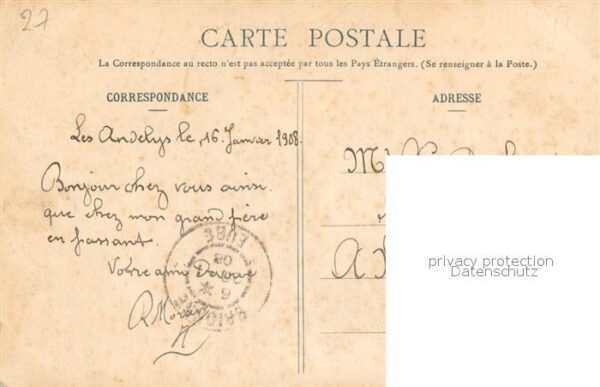 27
CARTE POSTALE
La Correspondance au recto n'est pas acceptée par tous les Pays Étrangers. (Se renseigner à la Poste.)
CORRESPONDANCE
Les Andelys le, 16 Janvier 1908.
Bonjour chez vous ainsi
que chez mon grand père
en passant.
Votre ami Dévoué
EURE
08
ADRESSE
privacy protection
Datenschutz